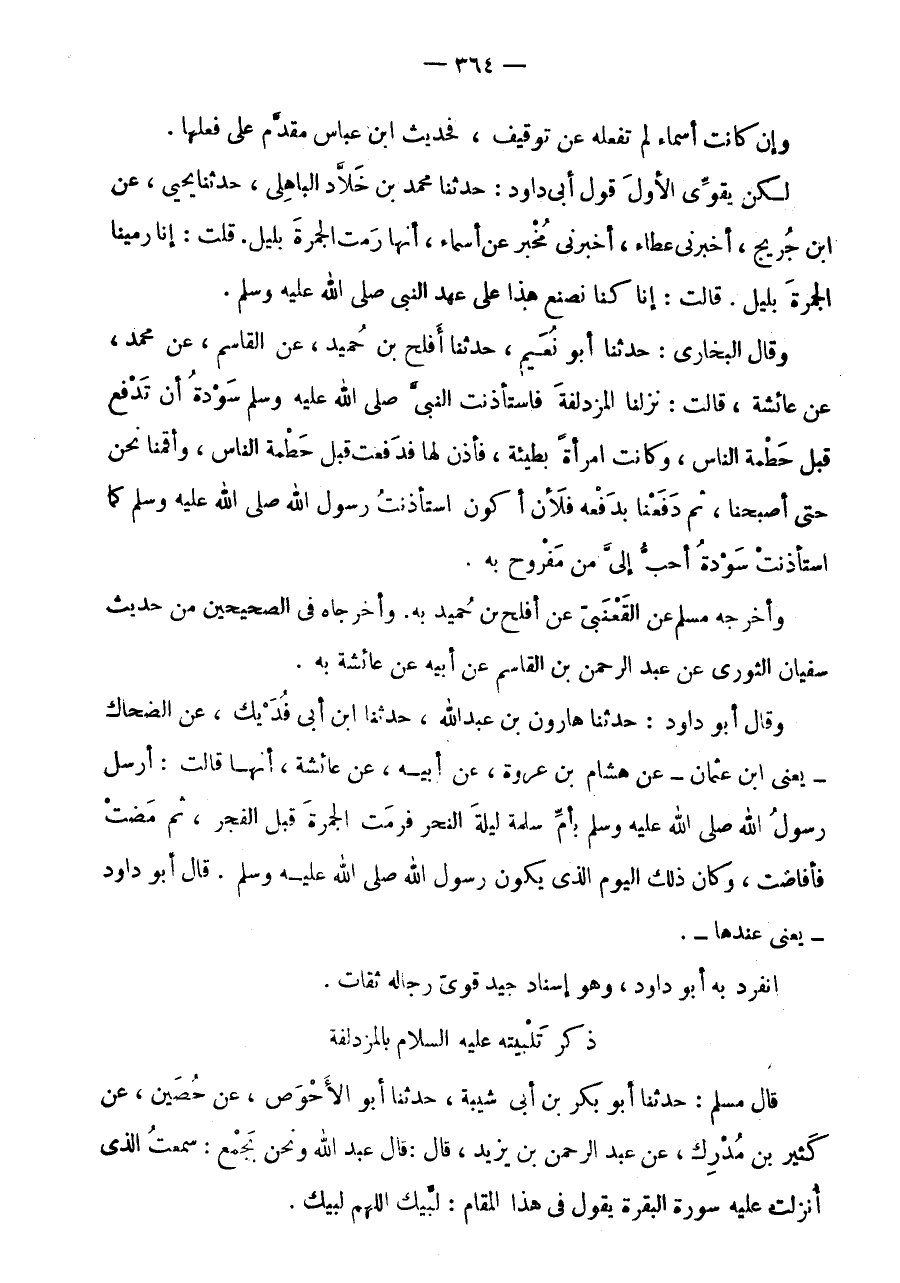 — ٣٦٤ —
وإن كانت أسماء لم تفعله عن توقيف ، فحديث ابن عباس مقدَّم على فعلها .
لكن يقوِّى الأولَ قول أبى داود : حدثنا محمد بن خَلاَّد الباهلى ، حدثنا يحيى ، عن
ابن جُريج ، أخبرنى عطاء ، أخبرنى مُخْبر عن أسماء ، أنها رَمت الجمرةَ بليل. قلت : إنا رمينا
الجمرةَ بليل . قالت : إنا كنا نصنع هذا على عهد النبى صلى الله عليه وسلم .
وقال البخارى : حدثنا أبو نُعَيم ، حدثنا أَفلح بن حُميد ، عن القاسم ، عن محمد ،
عن عائشة ، قالت : نزلنا المزدلفةَ فاستأذنت النبىَّ صلى الله عليه وسلم سَوْدةُ أن تَدْفع
قبل حَطْمة الناس ، وكانت امرأةً بطيئة ، فأذن لها فدَفعت قبل حَطْمة الناس ، وأقمنا نحن
حتى أصبحنا ، ثم دَفَعْنا بدَفْعه فلَأن أكون استأذنتُ رسول الله صلى الله عليه وسلم كما
استأذنتْ سَوْدةُ أحبُّ إلىَّ من مَفْروح به .
وأخرجه مسلم عن القَعْنَبىّ عن أفلح بن حُميد به. وأخرجاه فى الصحيحين من حديث
سفيان الثورى عن عبد الرحمن بن القاسم عن أبيه عن عائشة به .
وقال أبو داود : حدثنا هارون بن عبدالله ، حدثنا ابن أبى فُدَيْك ، عن الضحاك
ـ يعنى ابن عثمان ـ عن هشام بن عروة ، عن أبيـه ، عن عائشة ، أنهـا قالت : أرسل
رسولُ الله صلى الله عليه وسلم بأمِّ سلمة ليلةَ النحر فرمَت الجمرةَ قبل الفجر ، ثم مَضتْ
فأفاضت ، وكان ذلك اليوم الذى يكون رسول الله صلى الله عليـه وسلم . قال أبو داود
ـ يعنى عندها ـ .
انفرد به أبو داود ، وهو إسناد جيد قوىّ رجاله ثقات .
ذكر تَلْبيته عليه السلام بالمزدلفة
قال مسلم : حدثنا أبو بكر بن أبى شيبة ، حدثنا أبو الأَحْوَص ، عن حُصَين ، عن
كَثير بن مُدْرِك ، عن عبد الرحمن بن يزيد ، قال : قال عبد الله ونحن بَجمْع : سمعتُ الذى
أُنزلت عليه سورة البقرة يقول فى هذا المقام : لبَّيك اللهم لبيك .